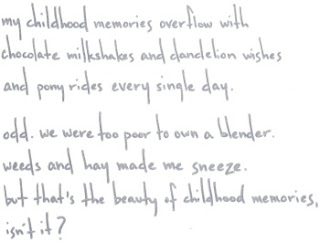 my childhood memories overflow with
chocolate milkshakes and dandelion wishes
and pony rides every single day.
odd. we were too poor to own a blender.
weeds and hay made me sneeze.
but that's the beauty of childhood memories,
isn't it?